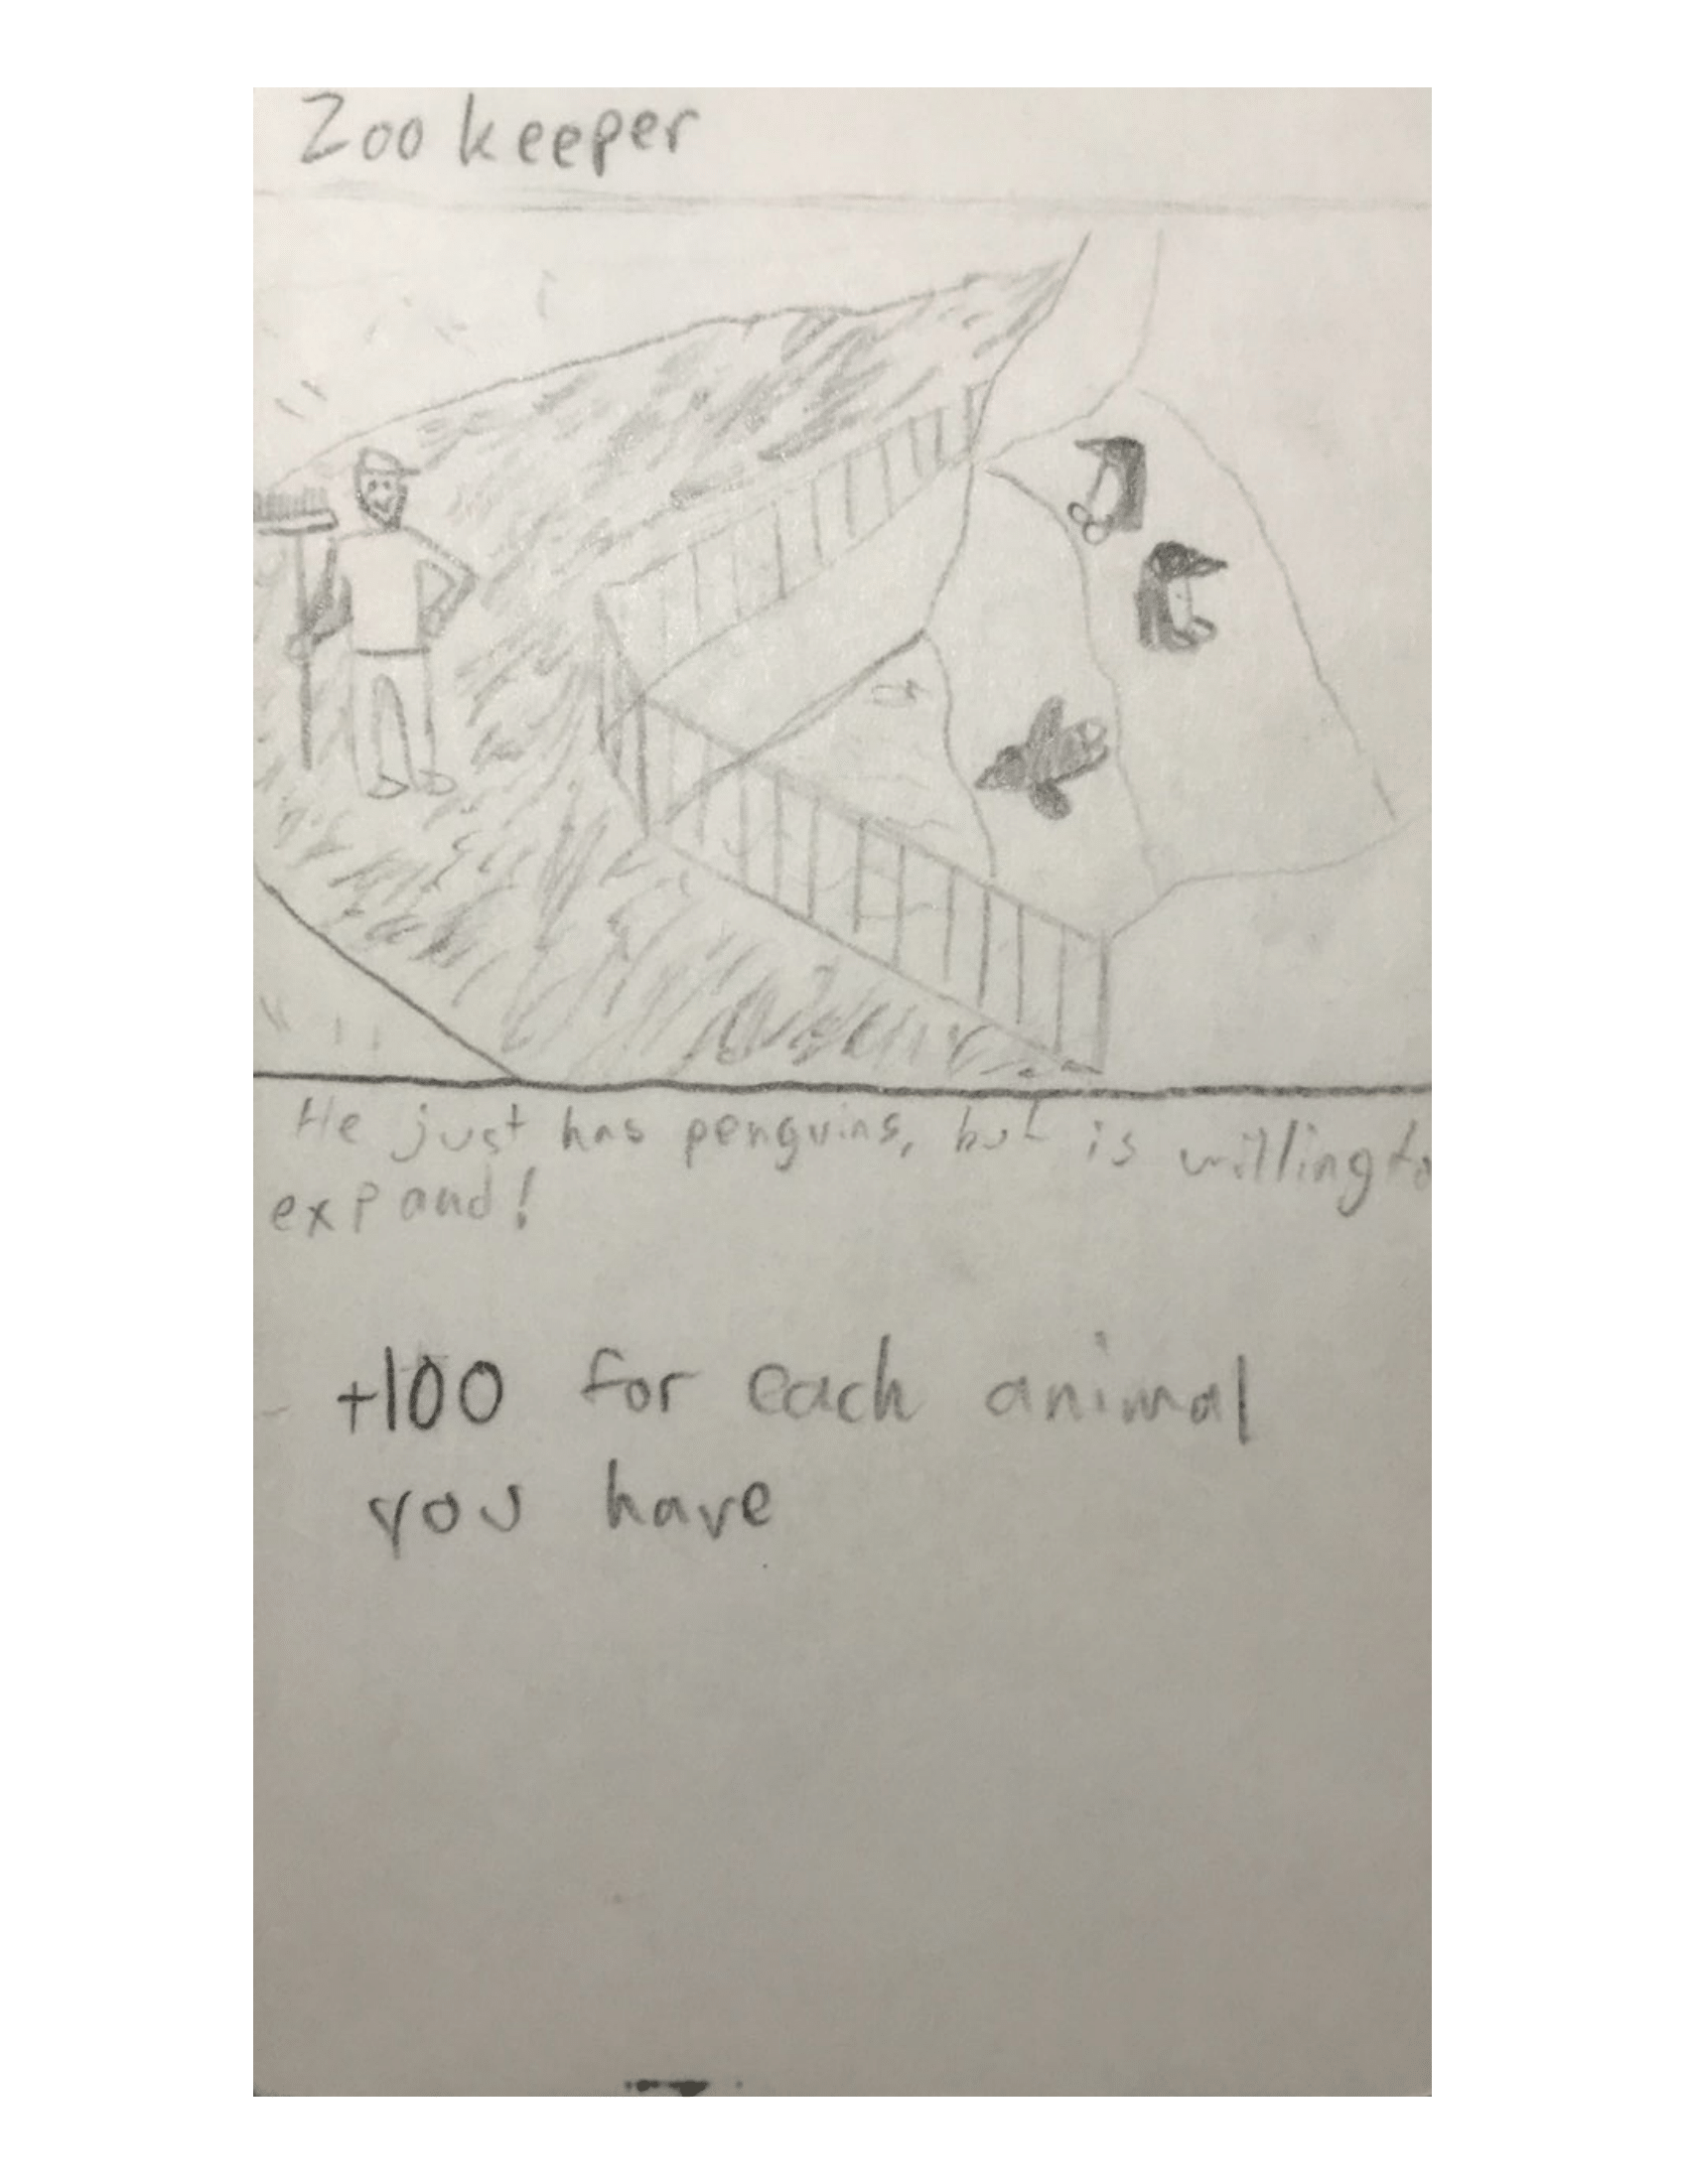 Zoo keeper
He just has penguins, but is willing to
expand!
+100 for each animal
you have